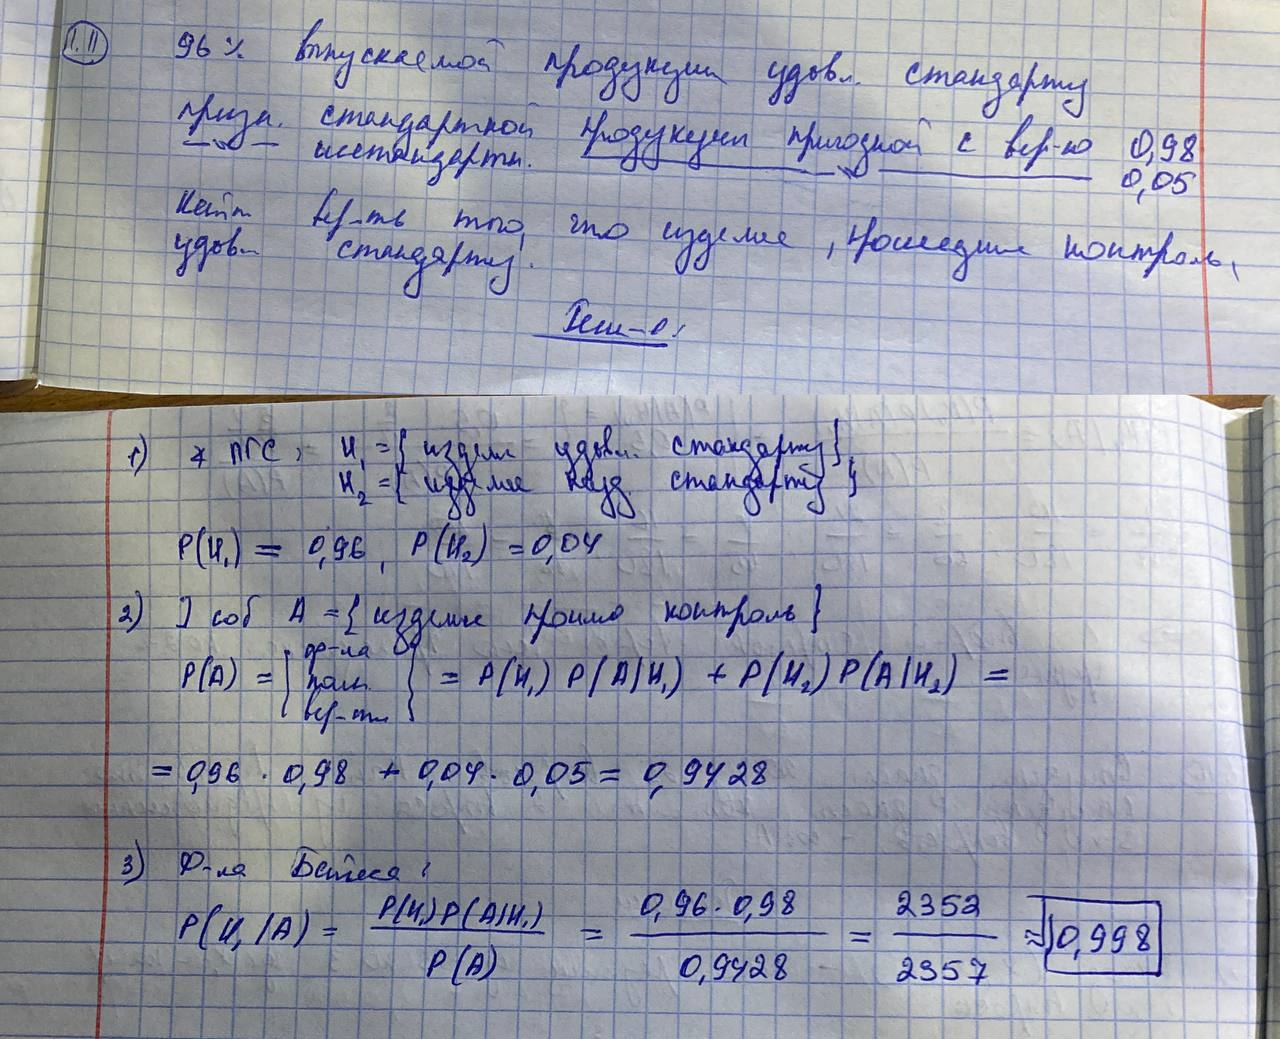 1.11 96% выпускаемой продукции удовл. стандарту
призн. стандартной продукции пригодной с вер-ю 0,98
—"— нестандартн. —"— 0,05
Найти вер-ть того, что изделие, прошедшее контроль,
удовл. стандарту.
Реш-е:
1) ПГС, H₁ = {изделие удовл. стандарту},
H₂ = {изделие неуд. стандарту};
P(H₁) = 0,96, P(H₂) = 0,04
2) ] соб A = {изделие прошло контроль}
P(A) = {ф-ла полн. вер-ти} = P(H₁) P(A|H₁) + P(H₂) P(A|H₂) =
= 0,96 · 0,98 + 0,04 · 0,05 = 0,9428
3) Ф-ла Байеса:
P(H₁/A) = P(H₁)P(A|H₁) / P(A) = 0,96 · 0,98 / 0,9428 = 2352 / 2357 ≈ 0,998